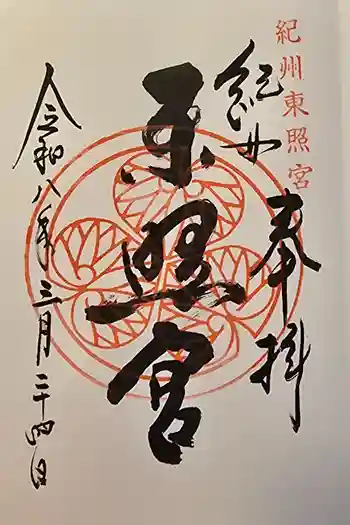 紀州東照宮
奉拝
紀州
東照宮
令和八年三月二十四日